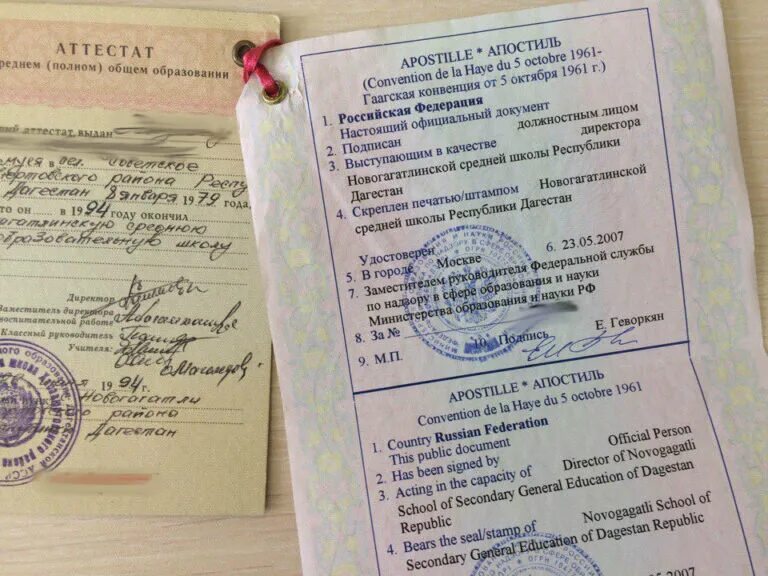 АТТЕСТАТ
реднем (полном) общем образовании
ный аттестат, выдан
в сел. Советское
района Респу
Дагестан 8 января 1979 года,
то он ..... в 1994 году окончил
огатлинскую среднюю
образовательную школу
Директор
Заместитель директора
воспитательной работе
Классный руководитель
Учителя:
1994 г.
Новогагатли
района
Дагестан
APOSTILLE * АПОСТИЛЬ
(Convention de la Haye du 5 octobre 1961-
Гаагская конвенция от 5 октября 1961 г.)
1. Российская Федерация
Настоящий официальный документ
2. Подписан должностным лицом
3. Выступающим в качестве директора
Новогагатлинской средней школы Республики
Дагестан
4. Скреплен печатью/штампом Новогагатлинской
средней школы Республики Дагестан
Удостоверен
5. В городе Москве 6. 23.05.2007
7. Заместителем руководителя Федеральной службы
по надзору в сфере образования и науки
Министерства образования и науки РФ
8. За №
9. М.П. 10. Подпись Е. Геворкян
APOSTILLE * АПОСТИЛЬ
Convention de la Haye du 5 octobre 1961
1. Country Russian Federation
This public document
2. Has been signed by Official Person
3. Acting in the capacity of Director of Novogagatli
School of Secondary General Education of Dagestan
Republic
4. Bears the seal/stamp of Novogagatli School of
Secondary General Education of Dagestan Republic
.05.2007